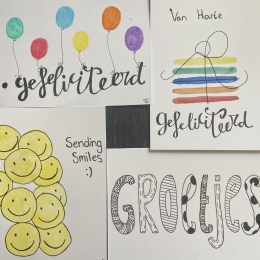 gefeliciteerd
Van Harte
gefeliciteerd
Sending
Smiles
:)
GROETJES